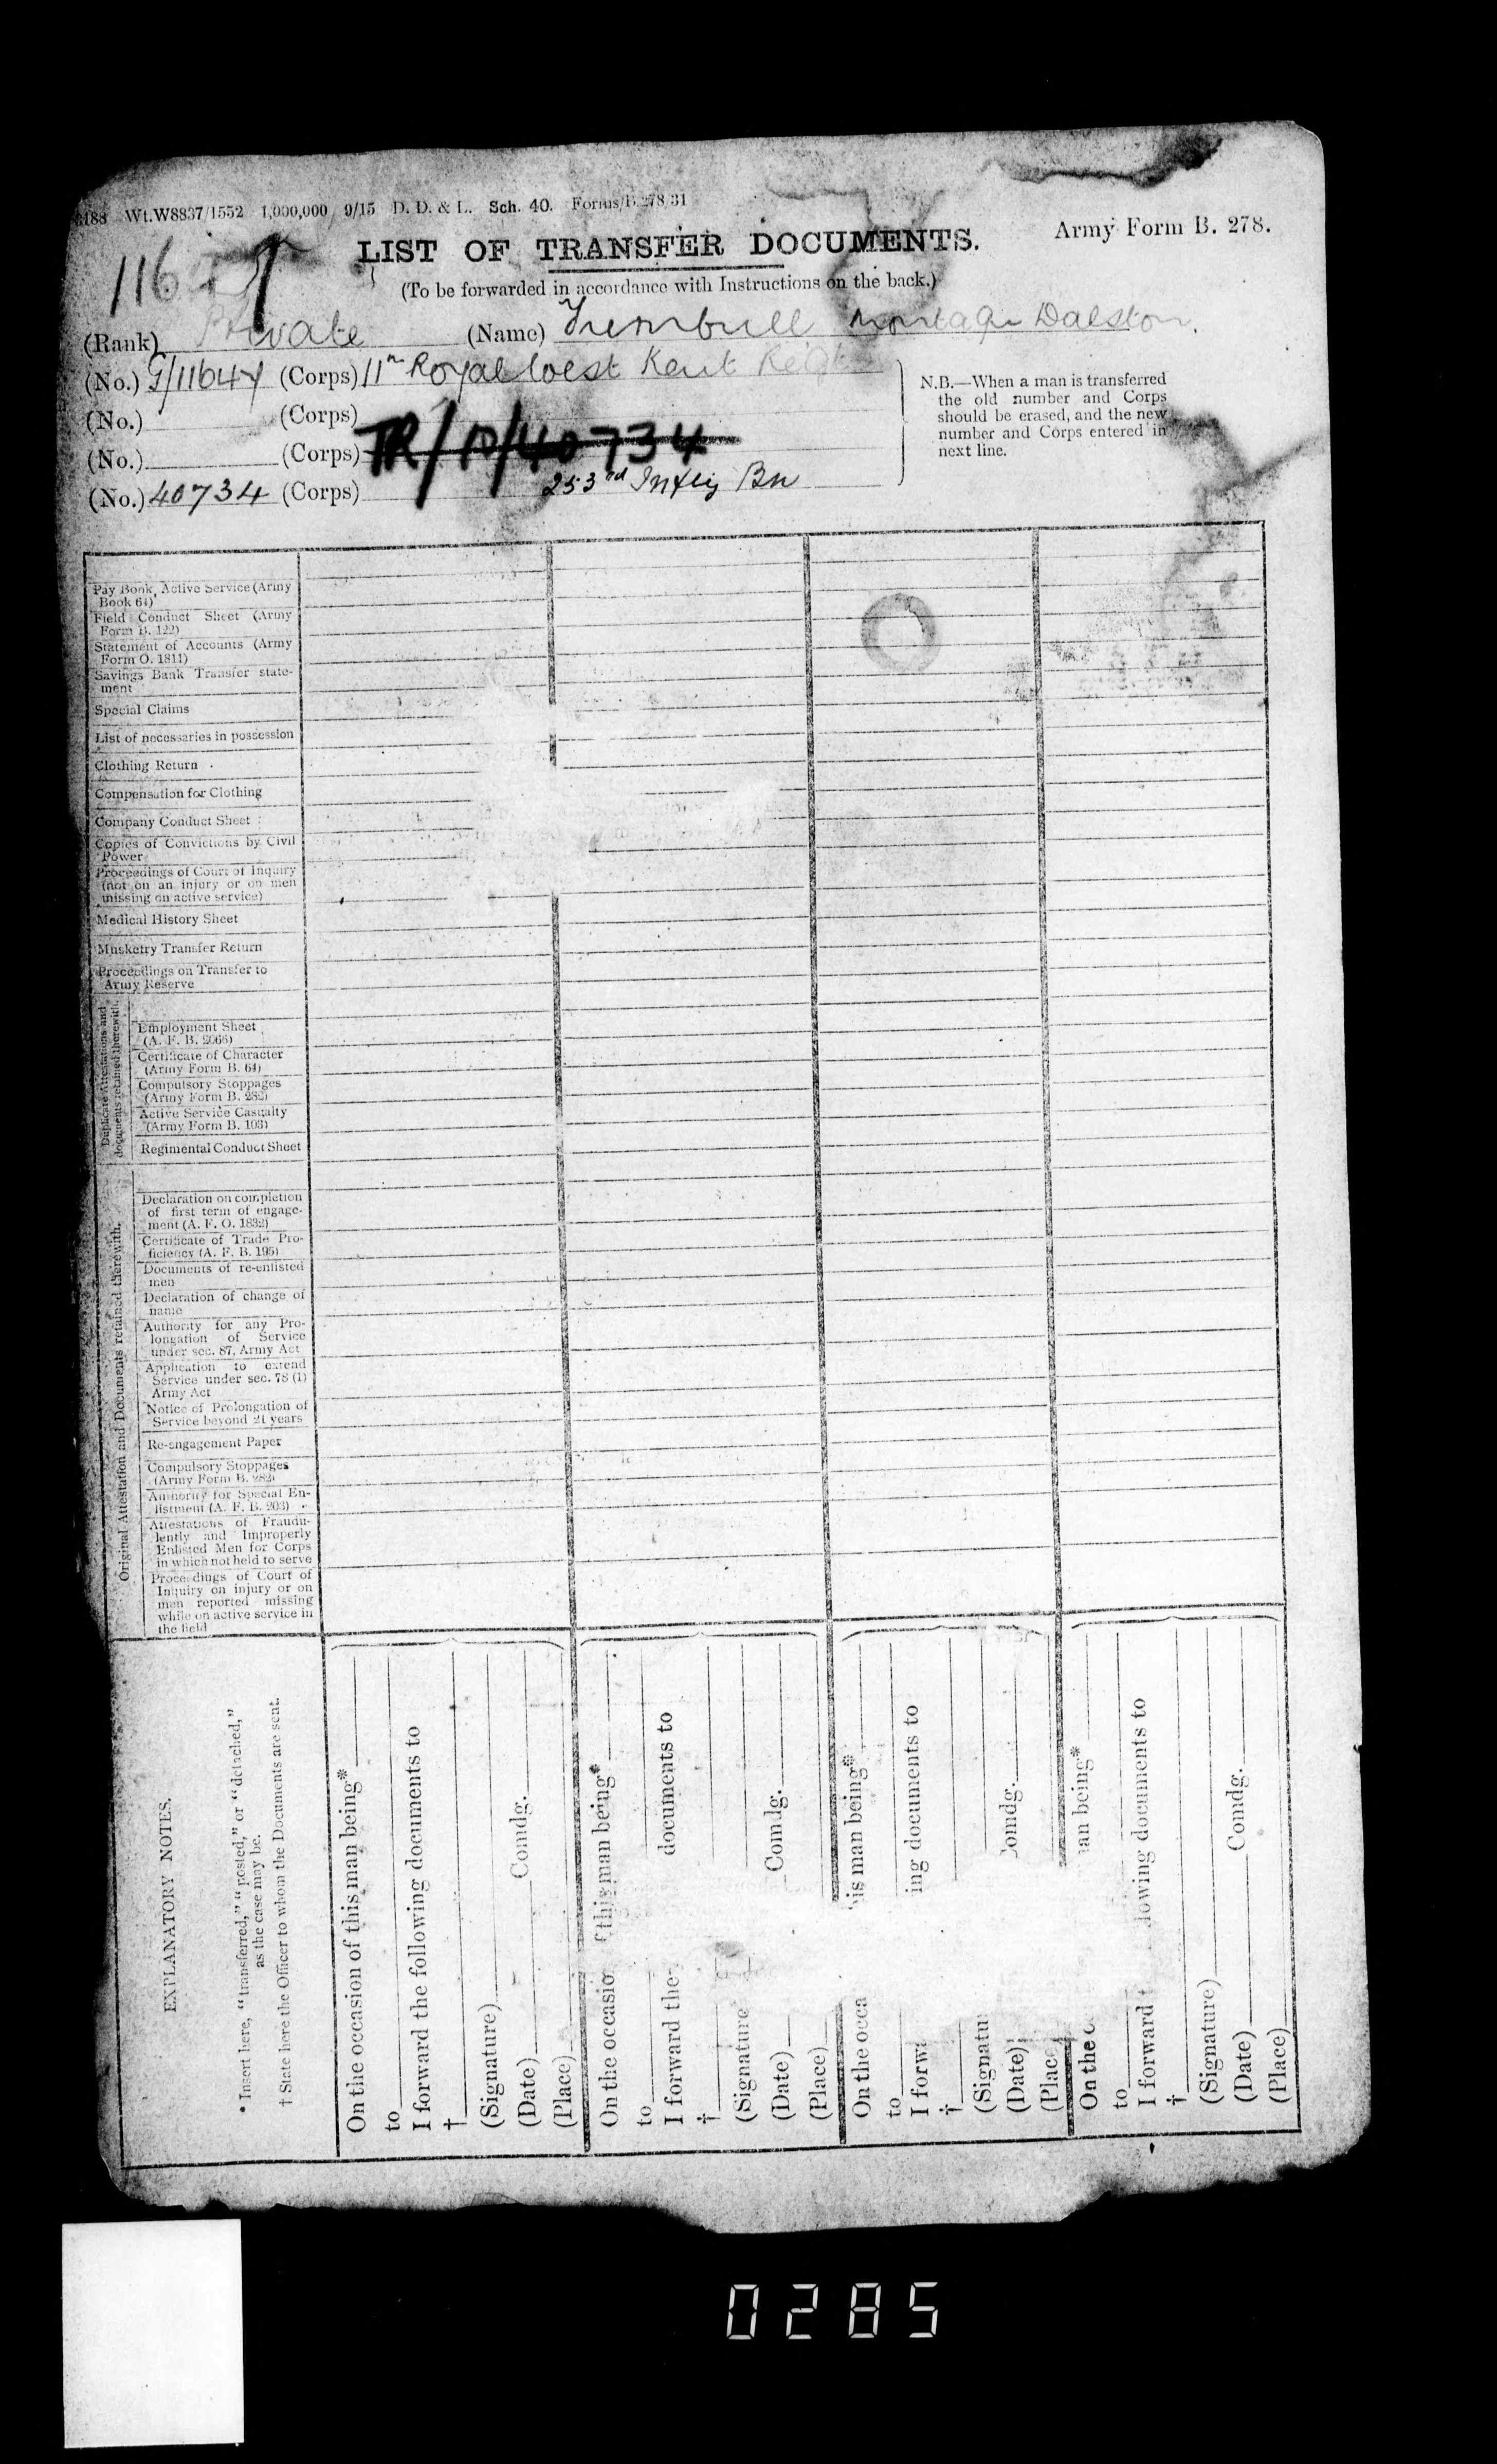 3188 Wt.W8837/1552 1,000,000 9/15 D. D. & L. Sch. 40. Forms/B.278/31
Army Form B. 278.
LIST OF TRANSFER DOCUMENTS.
(To be forwarded in accordance with Instructions on the back.)
(Rank) Private (Name) Turnbull Montagu Dalston.
(No.) G/11647 (Corps) 11th Royal West Kent Regt
(No.) (Corps)
(No.) (Corps) TR/10/40734
(No.) 40734 (Corps) 253rd Inf Bn
N.B.—When a man is transferred
the old number and Corps
should be erased, and the new
number and Corps entered in
next line.
Pay Book, Active Service (Army
Book 64)
Field Conduct Sheet (Army
Form B. 122)
Statement of Accounts (Army
Form O. 1811)
Savings Bank Transfer state-
ment
Special Claims
List of necessaries in possession
Clothing Return
Compensation for Clothing
Company Conduct Sheet
Copies of Convictions by Civil
Power
Proceedings of Court of Inquiry
(not on an injury or on men
missing on active service)
Medical History Sheet
Musketry Transfer Return
Proceedings on Transfer to
Army Reserve
Duplicate Attestations and
documents retained therewith.
Employment Sheet
(A. F. B. 2066)
Certificate of Character
(Army Form B. 64)
Compulsory Stoppages
(Army Form B. 282)
Active Service Casualty
(Army Form B. 103)
Regimental Conduct Sheet
Original Attestation and Documents retained therewith.
Declaration on completion
of first term of engage-
ment (A. F. O. 1832)
Certificate of Trade Pro-
ficiency (A. F. B. 195)
Documents of re-enlisted
men
Declaration of change of
name
Authority for any Pro-
longation of Service
under sec. 87, Army Act
Application to extend
Service under sec. 78 (1)
Army Act
Notice of Prolongation of
Service beyond 21 years
Re-engagement Paper
Compulsory Stoppages
(Army Form B. 282)
Authority for Special En-
listment (A. F. B. 203)
Attestations of Fraudu-
lently and Improperly
Enlisted Men for Corps
in which not held to serve
Proceedings of Court of
Inquiry on injury or on
men reported missing
while on active service in
the field
EXPLANATORY NOTES.
* Insert here, “transferred,” “posted,” or “detached,”
as the case may be.
† State here the Officer to whom the Documents are sent.
On the occasion of this man being*
to
I forward the following documents to
†
(Signature)
(Date) Comdg.
(Place)
On the occasio f this man being*
to
I forward the documents to
†
(Signature
(Date) Comdg.
(Place)
On the occa is man being*
to
I forw ing documents to
†
(Signatu
(Date) Comdg.
(Plac
On the o an being*
to
I forward lowing documents to
†
(Signature)
(Date) Comdg.
(Place)
0285